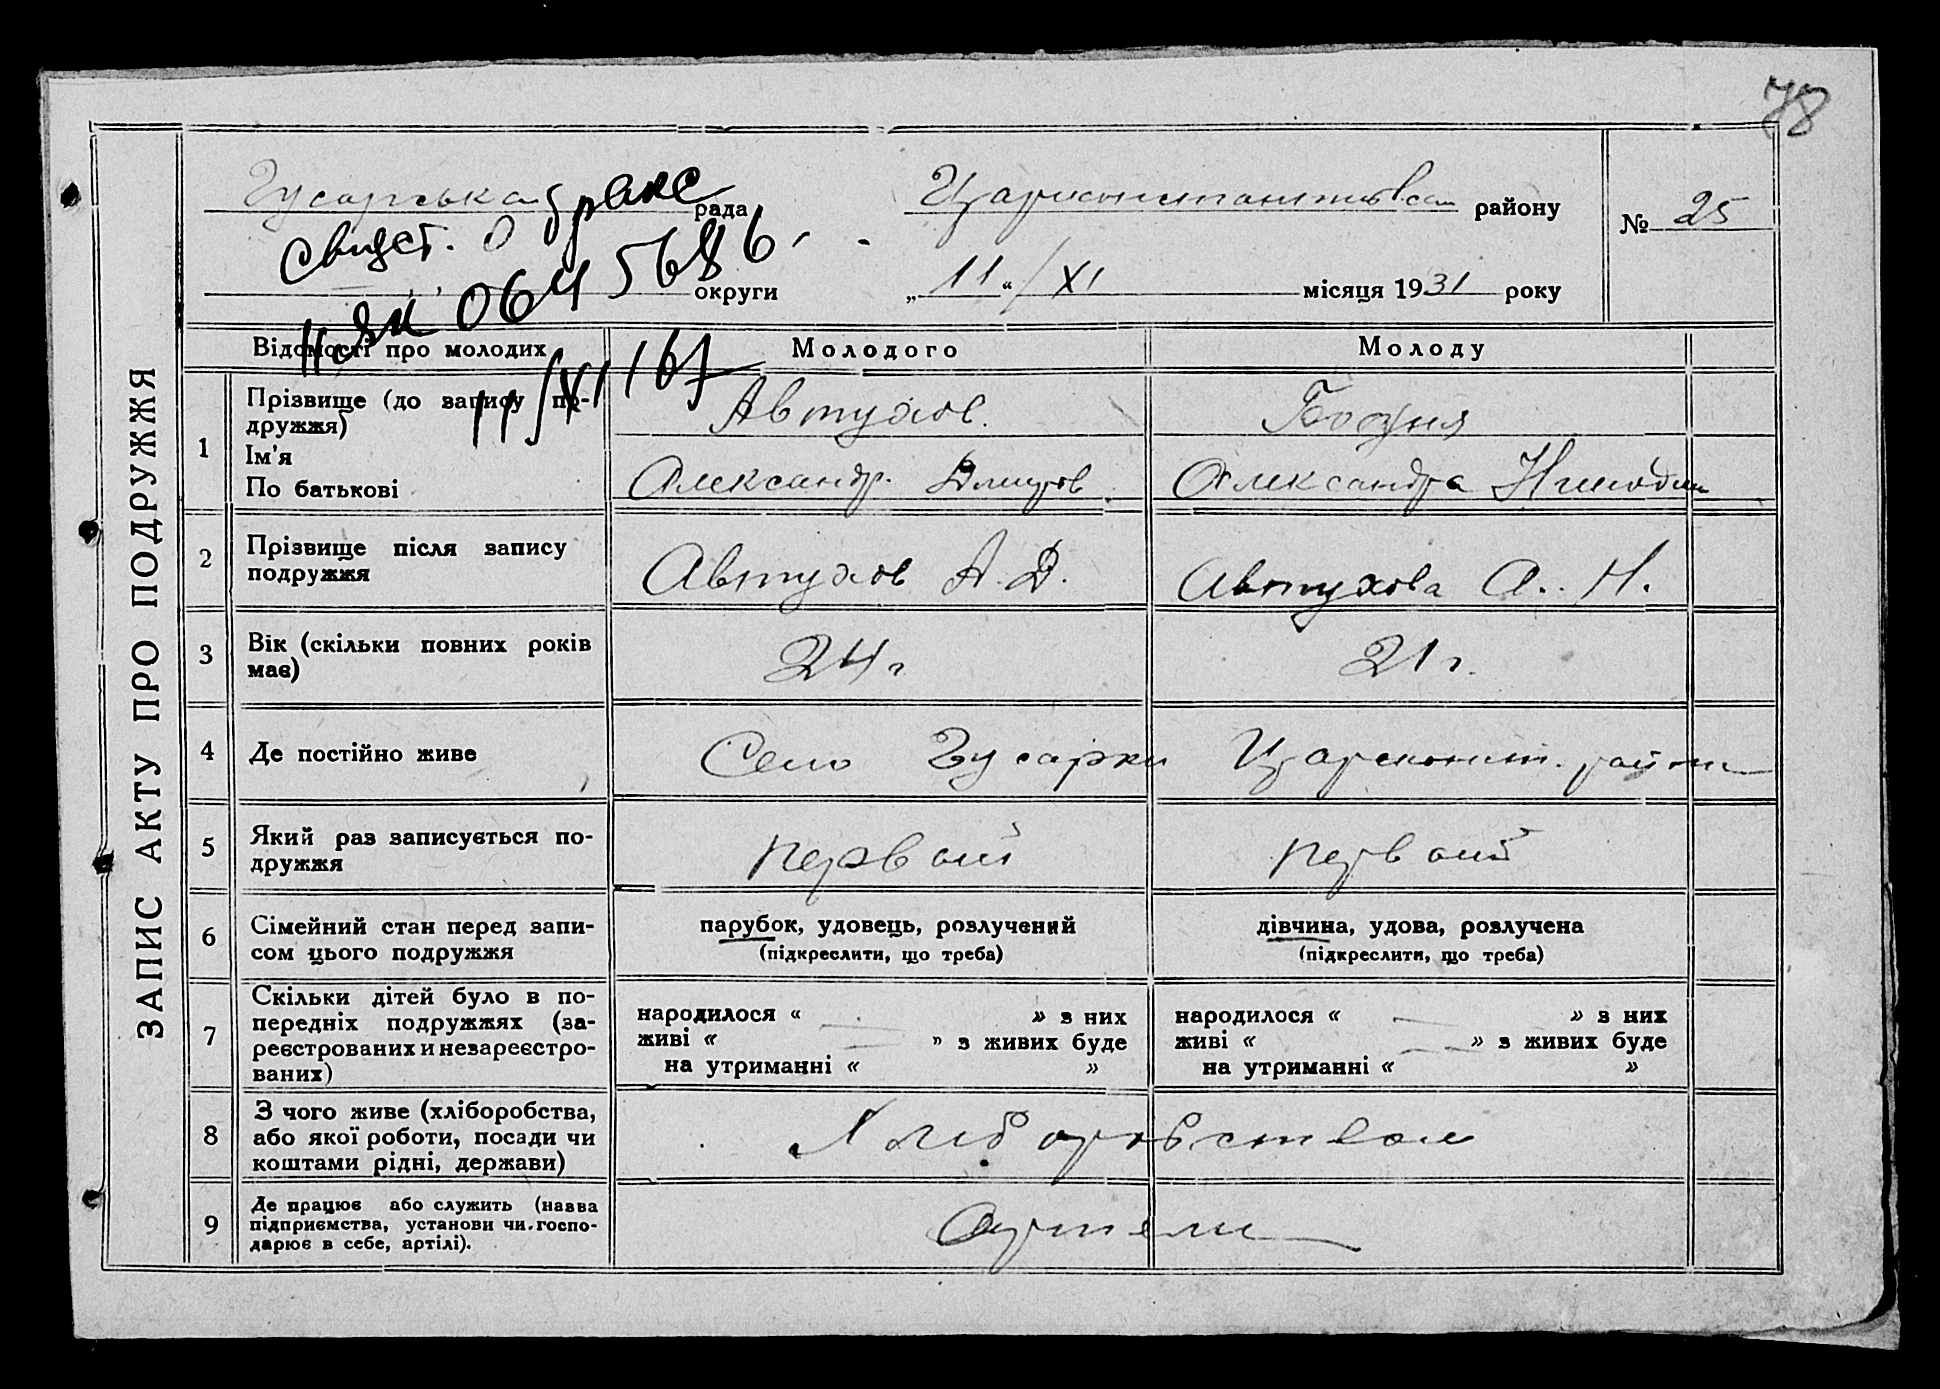 78
ЗАПИС АКТУ ПРО ПОДРУЖЖЯ
Гусарська рада
Царконстантиновск району
№ 25
Свидет. о браке
округи
„11“/XI місяця 1931 року
II ЯК 0645686
11/XI 167
Відомості про молодих
Молодого
Молоду
1
Прізвище (до запису по-
дружжя)
Ім'я
По батькові
Автухов.
Александр. Дмитров.
Бодня
Александра
2
Прізвище після запису
подружжя
Автухов А. Д.
Автухова А. Н.
3
Вік (скільки повних років
має)
24 г
21 г.
4
Де постійно живе
Село Гусарки Царсконст. района
5
Який раз записується по-
дружжя
первой
первой
6
Сімейний стан перед запи-
сом цього подружжя
парубок, удовець, розлучений
(підкреслити, що треба)
дівчина, удова, розлучена
(підкреслити, що треба)
7
Скільки дітей було в по-
передніх подружжях (за-
реєстрованих и незареєстро-
ваних)
народилося « — » з них
живі « — » з живих буде
на утриманні « »
народилося « — » з них
живі « — » з живих буде
на утриманні « »
8
З чого живе (хліборобства,
або якої роботи, посади чи
коштами рідні, держави)
Хлеборобством
9
Де працює або служить (назва
підприємства, установи чи, госпо-
дарює в себе, артілі).
Артели